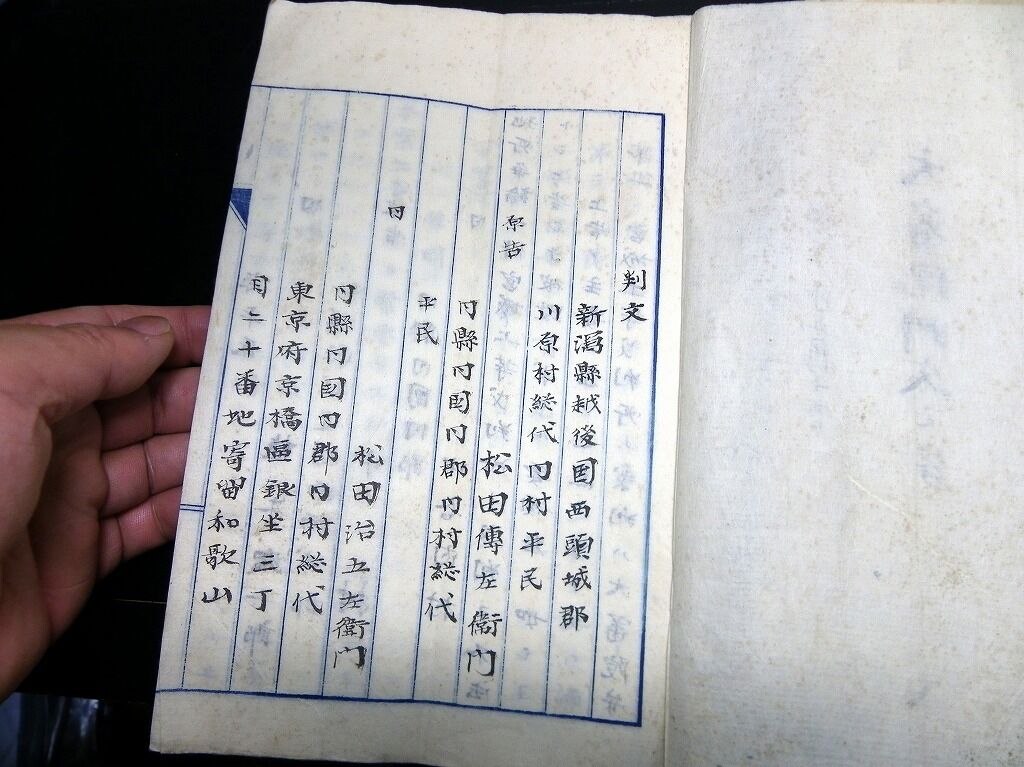 判文
新潟縣越後国西頭城郡
川原村総代同村平民
原告 松田傳左衛門
同縣同国同郡同村総代
平民
同 松田治五左衛門
同縣同国同郡同村総代
東京府京橋區銀坐三丁
目二十番地寄留和歌山